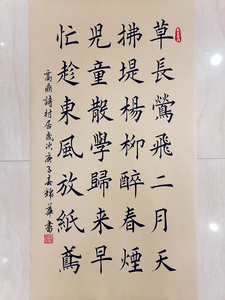 草長鶯飛二月天
拂堤楊柳醉春煙
兒童散學歸来早
忙趁東風放紙鳶
高鼎詩村居歲次庚子春瑞華書